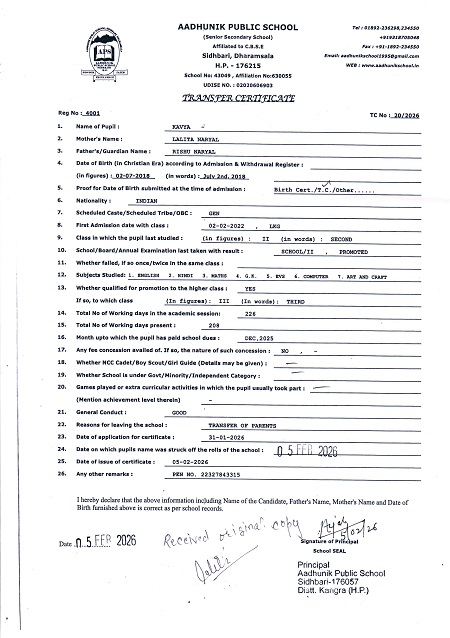 AADHUNIK PUBLIC SCHOOL
(Senior Secondary School)
Affiliated to C.B.S.E
Sidhbari, Dharamsala
H.P. - 176215
School No: 43049 , Affiliation No:630055
UDISE NO. : 02020606903
Tel : 01892-236298,234550
+919318705048
Fax : +91-1892-234550
Email: aadhunikschool1995@gmail.com
WEB : www.aadhunikschool.in
APS
TRANSFER CERTIFICATE
Reg No : 4001
TC No : 20/2026
1. Name of Pupil : KAVYA
2. Mother's Name : LALITA NARYAL
3. Father's/Guardian Name : RISHU NARYAL
4. Date of Birth (in Christian Era) according to Admission & Withdrawal Register :
(in figures) : 02-07-2018 (in words) : July 2nd. 2018
5. Proof for Date of Birth submitted at the time of admission : Birth Cert./T.C./Other......
6. Nationality : INDIAN
7. Scheduled Caste/Scheduled Tribe/OBC : GEN
8. First Admission date with class : 02-02-2022 , LKG
9. Class in which the pupil last studied : (in figures) : II (in words) : SECOND
10. School/Board/Annual Examination last taken with result : SCHOOL/II , PROMOTED
11. Whether failed, if so once/twice in the same class :
12. Subjects Studied: 1. ENGLISH 2. HINDI 3. MATHS 4. G.K. 5. EVS 6. COMPUTER 7. ART AND CRAFT
13. Whether qualified for promotion to the higher class : YES
If so, to which class (In figures): III (In Words): THIRD
14. Total No of Working days in the academic session: 226
15. Total No of Working days present : 208
16. Month upto which the pupil has paid school dues : DEC,2025
17. Any fee concession availed of. If so, the nature of such concession : NO , -
18. Whether NCC Cadet/Boy Scout/Girl Guide (Details may be given) :
19. Whether School is under Govt/Minority/Independent Category :
20. Games played or extra curricular activities in which the pupil usually took part :
(Mention achievement level therein) -
21. General Conduct : GOOD
22. Reasons for leaving the school : TRANSFER OF PARENTS
23. Date of application for certificate : 31-01-2026
24. Date on which pupils name was struck off the rolls of the school : 05 FEB 2026
25. Date of issue of certificate : 05-02-2026
26. Any other remarks : PEN NO. 22327843315
I hereby declare that the above information including Name of the Candidate, Father's Name, Mother's Name and Date of
Birth furnished above is correct as per school records.
Date 05 FEB 2026
Received original copy
5/02/26
Signature of Principal
School SEAL
Principal
Aadhunik Public School
Sidhbari-176057
Distt. Kangra (H.P.)